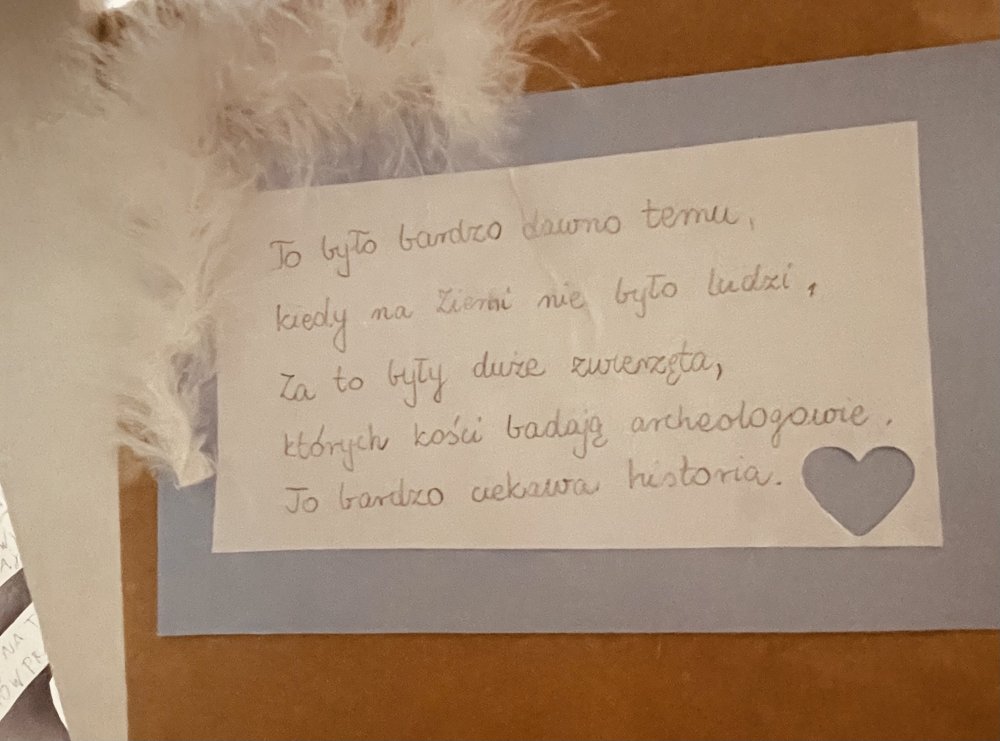 To było bardzo dawno temu,
kiedy na Ziemi nie było ludzi,
Za to były duże zwierzęta,
których kości badają archeologowie.
To bardzo ciekawa historia.
NA T
ÓW PR